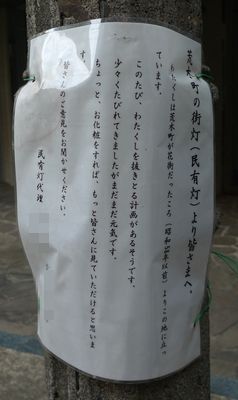 荒木町の街灯（民有灯）より皆さまへ。
わたくしは荒木町が花街だったころ（昭和　年以前）よりこの地に立っ
ています。
このたび、わたくしを抜きとる計画があるそうです。
少々くたびれてきましたがまだまだ元気です。
ちょっと、お化粧をすれば、もっと皆さんに見ていただけると思いま
す。
皆さんのご意見をお聞かせください。
民有灯代理